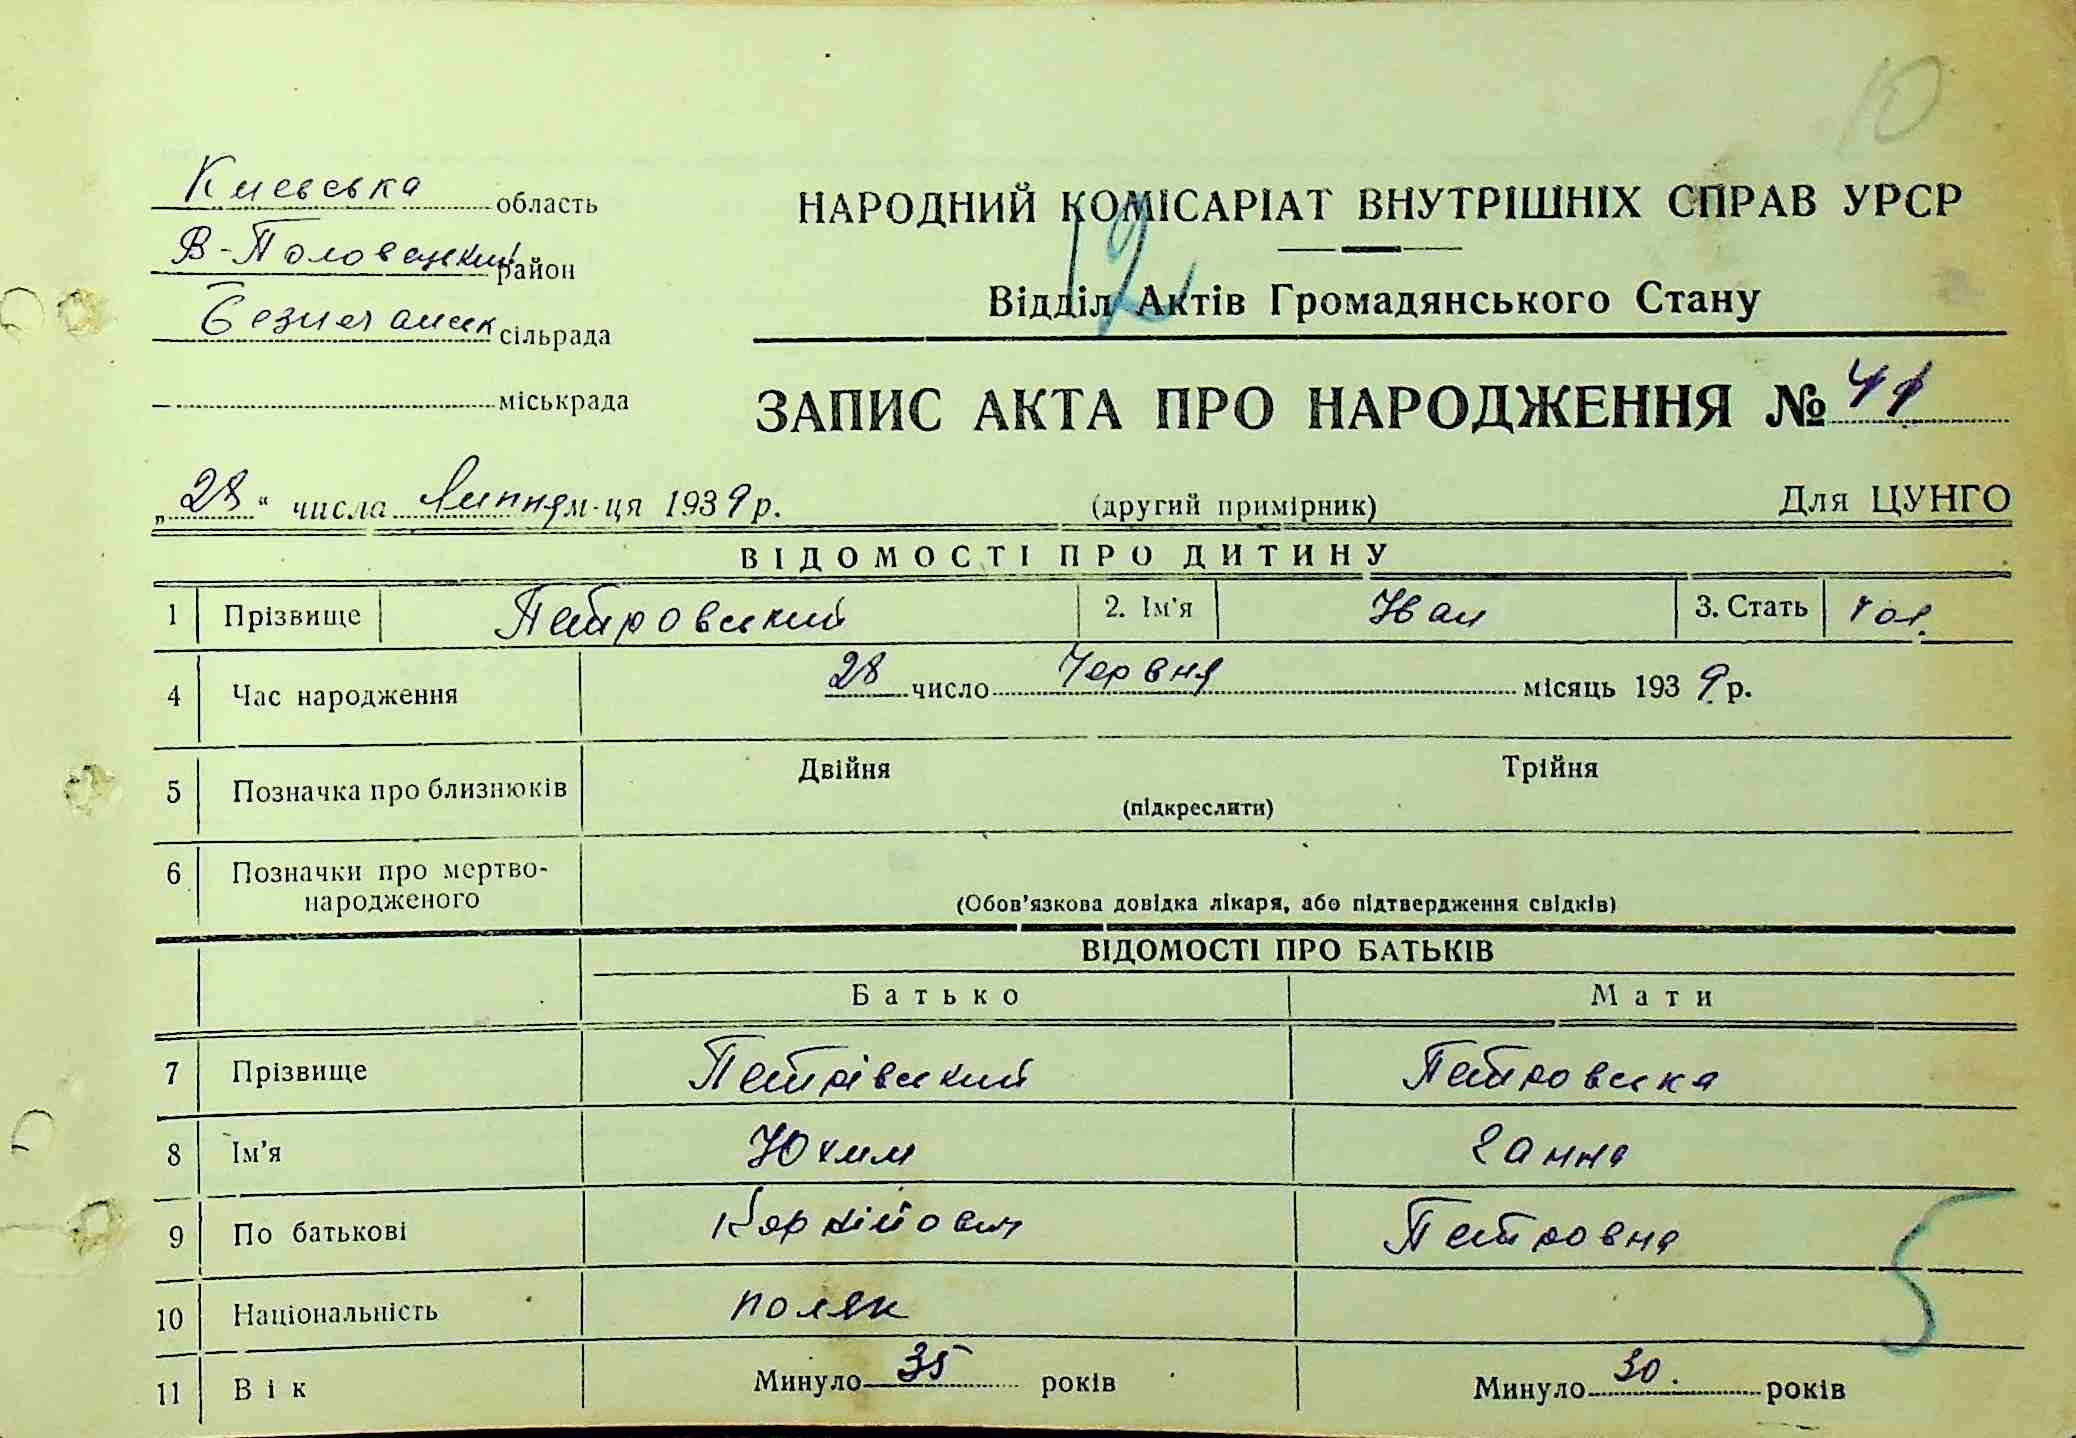 10
Києвська область
В-Половецкий район
Безпечанск сільрада
міськрада
НАРОДНИЙ КОМІСАРІАТ ВНУТРІШНІХ СПРАВ УРСР
12
Відділ Актів Громадянського Стану
ЗАПИС АКТА ПРО НАРОДЖЕННЯ № 41
„28“ числа Липня м-ця 1939 р. (другий примірник) Для ЦУНГО
ВІДОМОСТІ ПРО ДИТИНУ
1 Прізвище Петровський 2. Ім'я Иван 3. Стать чол.
4 Час народження 28 число Червня місяць 1939 р.
5 Позначка про близнюків Двійня Трійня
(підкреслити)
6 Позначки про мертво-
народженого
(Обов'язкова довідка лікаря, або підтвердження свідків)
ВІДОМОСТІ ПРО БАТЬКІВ
Батько Мати
7 Прізвище Петрівський Петровська
8 Ім'я Юхим Ганна
9 По батькові Петровна
5
10 Національність поляк
11 Вік Минуло 35 років Минуло 30. років